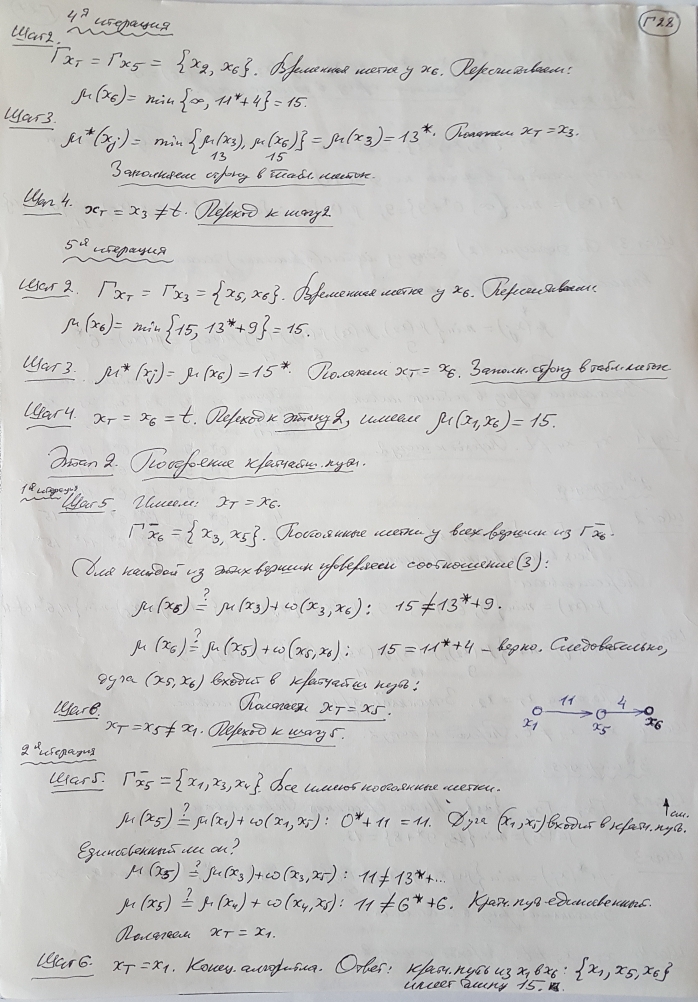 Г28
4я итерация
Шаг2. Γx_T = Γx_5 = {x_2, x_6}. Временная метка у x_6. Пересчитываем:
μ(x_6) = min {∞, 11*+4} = 15.
Шаг3. μ*(x_j) = min {μ(x_3), μ(x_6)} = μ(x_3) = 13*. Полагаем x_T = x_3.
13 15
Заполняем строку в табл. меток.
Шаг 4. x_T = x_3 ≠ t. Переход к шагу 2
5я итерация
Шаг 2. Γx_T = Γx_3 = {x_5, x_6}. Временная метка у x_6. Пересчитываем.
μ(x_6) = min {15, 13*+9} = 15.
Шаг 3. μ*(x_j) = μ(x_6) = 15*. Полагаем x_T = x_6. Заполн. строку в табл. меток
Шаг 4. x_T = x_6 = t. Переход к этапу 2, имеем μ(x_1, x_6) = 15.
Этап 2. Построение кратчайш. пути.
1я итерация
Шаг 5. Имеем: x_T = x_6.
Γ⁻x_6 = {x_3, x_5}. Постоянные метки у всех вершин из Γ⁻x_6.
Для каждой из этих вершин проверяем соотношение (3):
μ(x_5) ≟ μ(x_3) + ω(x_3, x_6): 15 ≠ 13*+9.
μ(x_6) ≟ μ(x_5) + ω(x_5, x_6): 15 = 11*+4 – верно. Следовательно,
дуга (x_5, x_6) входит в кратчайш. путь:
Полагаем x_T = x_5.
Шаг 6. x_T = x_5 ≠ x_1. Переход к шагу 5.
11 4
x_1 x_5 x_6
2я итерация
Шаг 5. Γ⁻x_5 = {x_1, x_3, x_4}. Все имеют постоянные метки.
↑ см.
μ(x_5) ≟ μ(x_1) + ω(x_1, x_5): 0*+11 = 11. Дуга (x_1, x_5) входит в кратч. путь.
Единственный ли он?
μ(x_5) ≟ μ(x_3) + ω(x_3, x_5): 11 ≠ 13*+...
μ(x_5) ≟ μ(x_4) + ω(x_4, x_5): 11 ≠ 6*+6. Кратч. путь единственный.
Полагаем x_T = x_1.
Шаг 6. x_T = x_1. Конец алгоритма. Ответ: кратч. путь из x_1 в x_6: {x_1, x_5, x_6}
имеет длину 15.